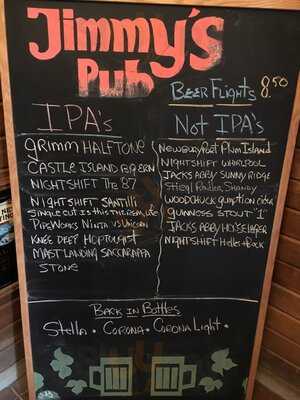 Jimmy's
Pub
Beer Flights 8.50
IPA's
GRIMM HALFTONE
CASTLE ISLAND
NIGHTSHIFT THE 87
NIGHTSHIFT SANTILLI
SINGLE CUT IS THIS THE REAL LIFE
PIPEWORKS NINJA VS UNICORN
KNEE DEEP HOPTOLOGIST
MAST LANDING SACCARAPPA
STONE
Not IPA's
NEWBURYPORT PLUM ISLAND
NIGHTSHIFT WHIRLPOOL
JACKS ABBY SUNNY RIDGE
Stiegl Radler, Shandy
WOODCHUCK gumption cider
GUINNESS STOUT "1"
JACKS ABBY HOUSE LAGER
NIGHTSHIFT Heller Bock
Back in Bottles
Stella • Corona • Corona Light •